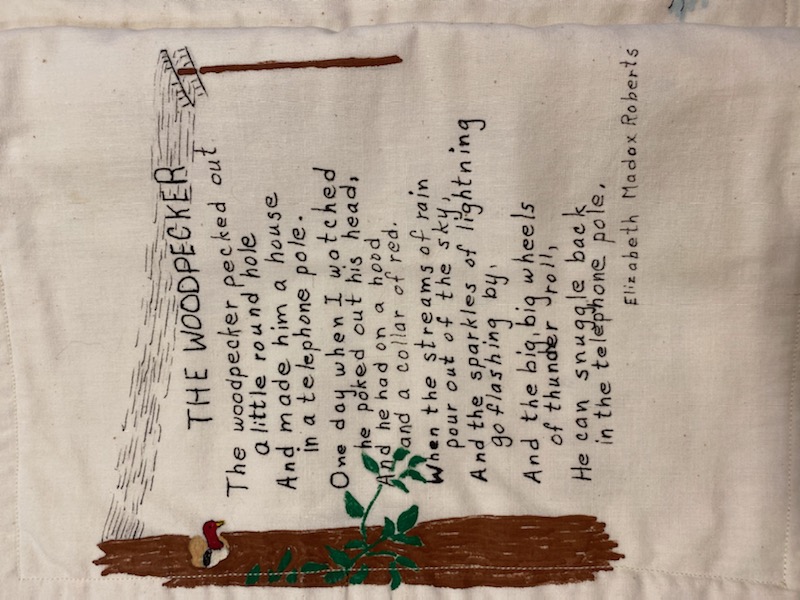 THE WOODPECKER
The woodpecker pecked out
a little round hole
And made him a house
in a telephone pole.
One day when I wotched
he poked out his head,
And he had on a hood
and a collar of red.
When the streams of rain
pour out of the sky,
And the sparkles of lightning
go flashing by,
And the big, big wheels
of thunder roll,
He can snuggle back
in the telephone pole.
Elizabeth Madox Roberts